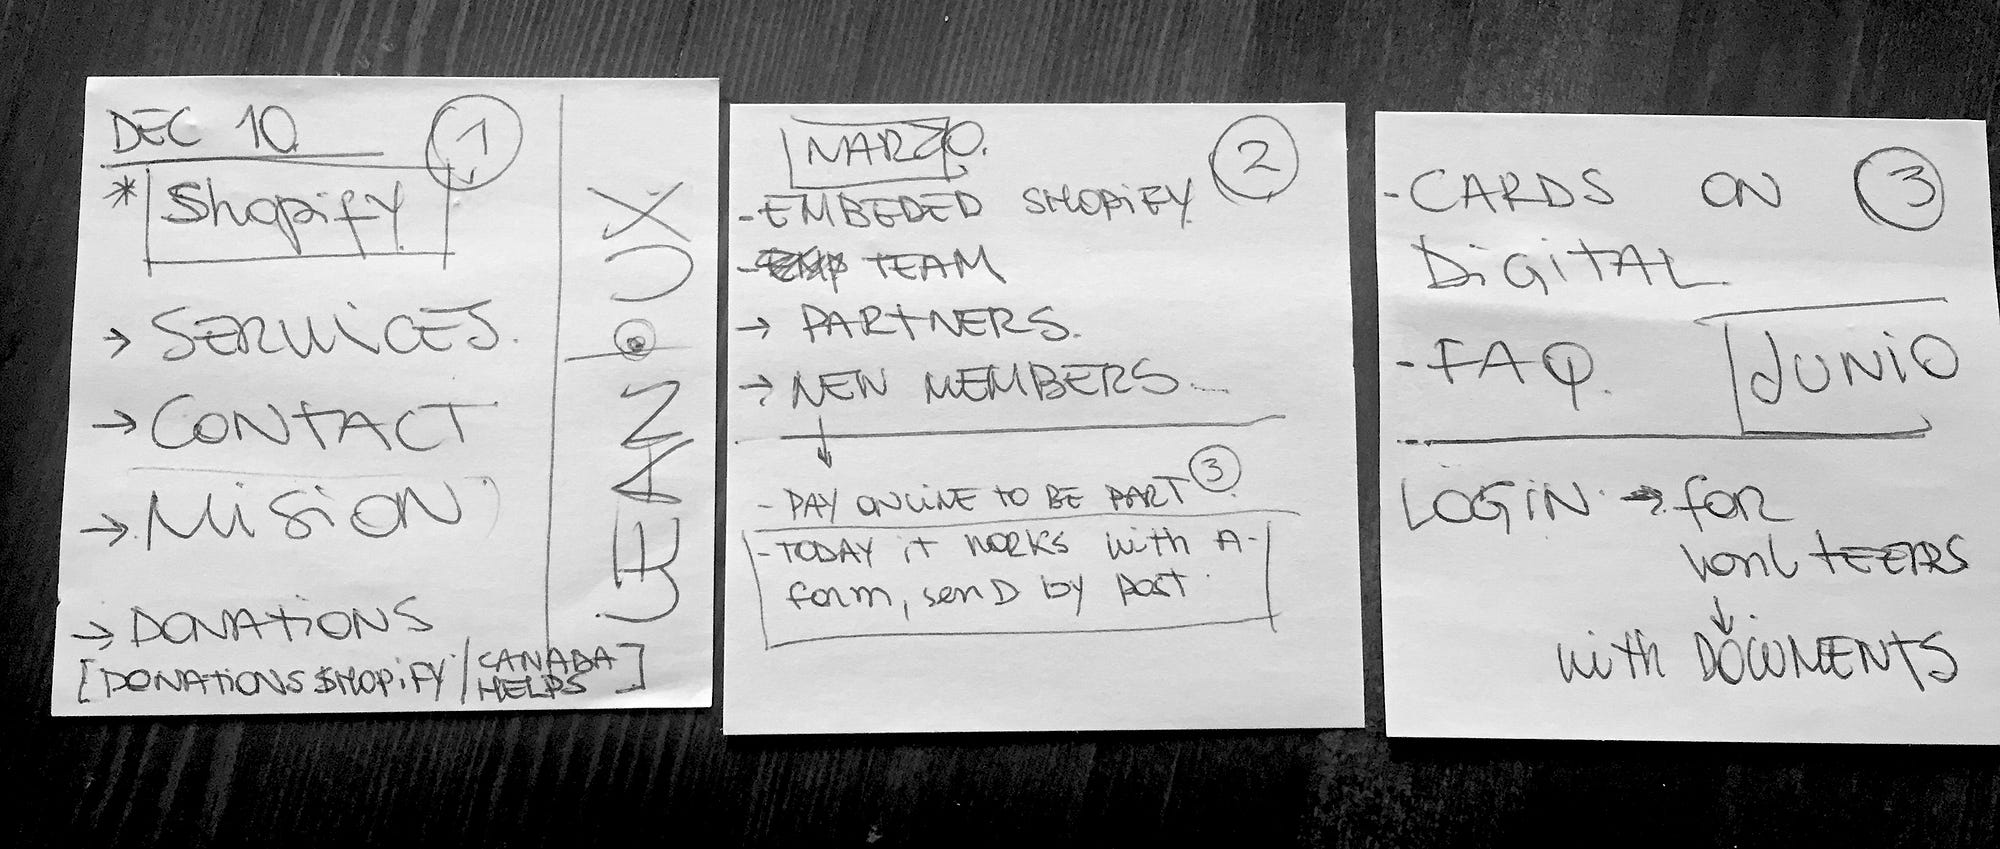 DEC 10
1
* Shopify
→ SERVICES.
→ CONTACT
→ MISION
→ DONATIONS
[DONATIONS SHOPIFY / CANADA HELPS]
LEAN UX
MARZO.
2
- EMBEDED SHOPIFY
- TEAM
→ PARTNERS.
→ NEW MEMBERS...
↓
- PAY ONLINE TO BE PART 3
- TODAY it WORKS with A
form, send by post.
- CARDS ON
3
DIGITAL.
- FAQ.
JUNIO
LOGIN → for
vonlTEERS
↓
with DOCUMENTS